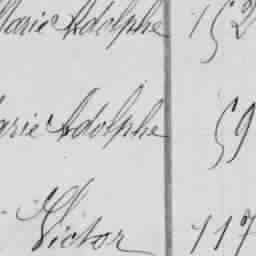 Marie Adolphe 152
arie Adolphe 59
Victor 117